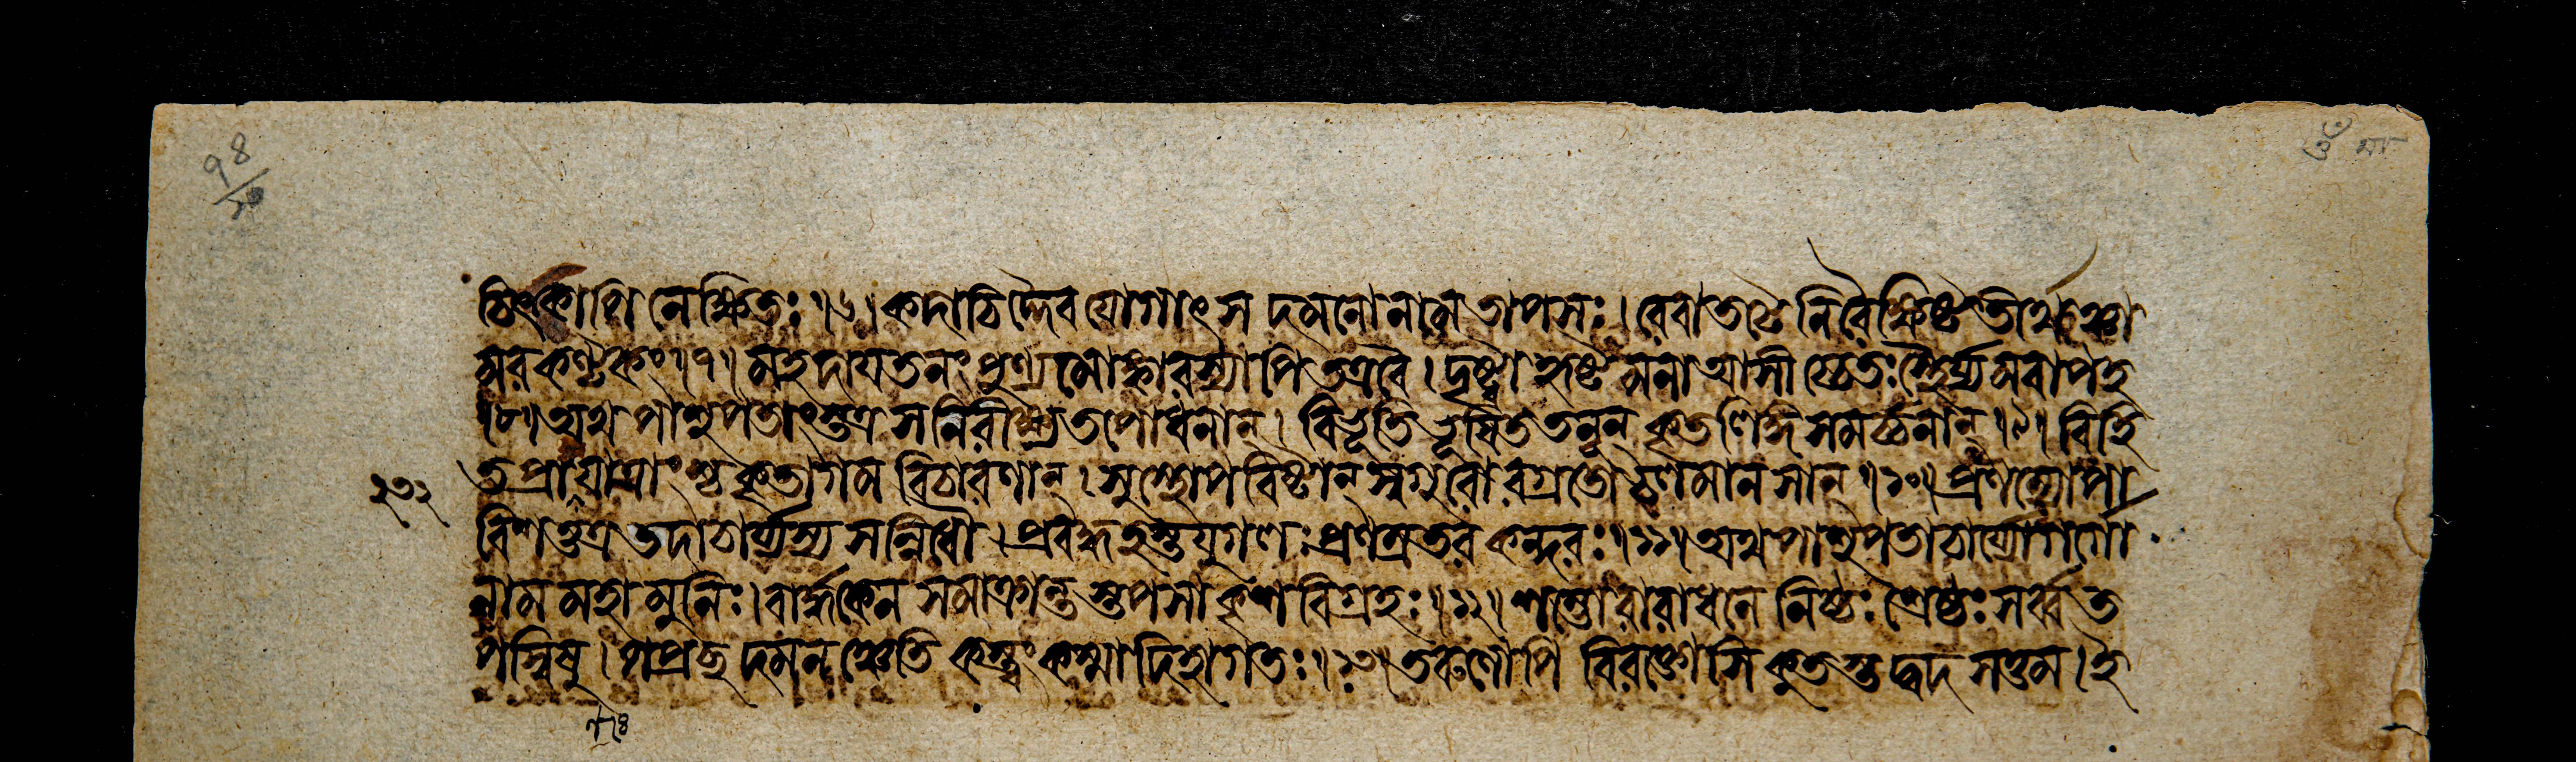 চিৎকাপি নেক্ষিতঃ ॥৬॥ কদাচিদ্দৈবযোগাৎ স দমনোনাম তাপসঃ । রেবাতটে নিরৈক্ষিষ্ট তীর্থঞ্চা
মরকণ্টকং ॥৭॥ মহদায়তনং পুণ্যমোঙ্কারস্যাপি তত্রবৈ । দৃষ্ট্বা হৃষ্টমনা আসীচ্চেতঃস্থৈর্য্যমবাপহ
॥৮॥ অথ পাশুপতাংস্তত্র স নিরীক্ষ্য তপোধনান্ । বিভূতিভূষিততনূন্ কৃতলিঙ্গসমর্চনান্ ॥৯॥ বিহি
তপ্রাণযাত্রাংশ্চ কৃতাগমবিচারণান্ । সুস্থোপবিষ্টান্ স্বগুরোরগ্রতো মানসান্ ॥১০॥ প্রণম্যোপা
২৩২
বিশত্তত্র তদাচার্য্যস্য সন্নিধৌ । প্রবদ্ধহস্তযুগলঃ প্রণম্রতরকন্ধরঃ ॥১১॥ অথ পাশুপতাচার্য্যো গর্গো
নাম মহামুনিঃ । বার্দ্ধকেন সমাক্রান্তস্তপসা কৃশবিগ্রহঃ ॥১২॥ শম্ভোরারাধনে নিষ্ঠঃ শ্রেষ্ঠঃ সর্ব্বত
পস্বিষু । পপ্রচ্ছ দমনঞ্চেতি কস্ত্বং কস্মাদিহাগতঃ ॥১৩॥ তরুণোপি বিরক্তোসি কুতস্তদ্বদ সত্তম । ই